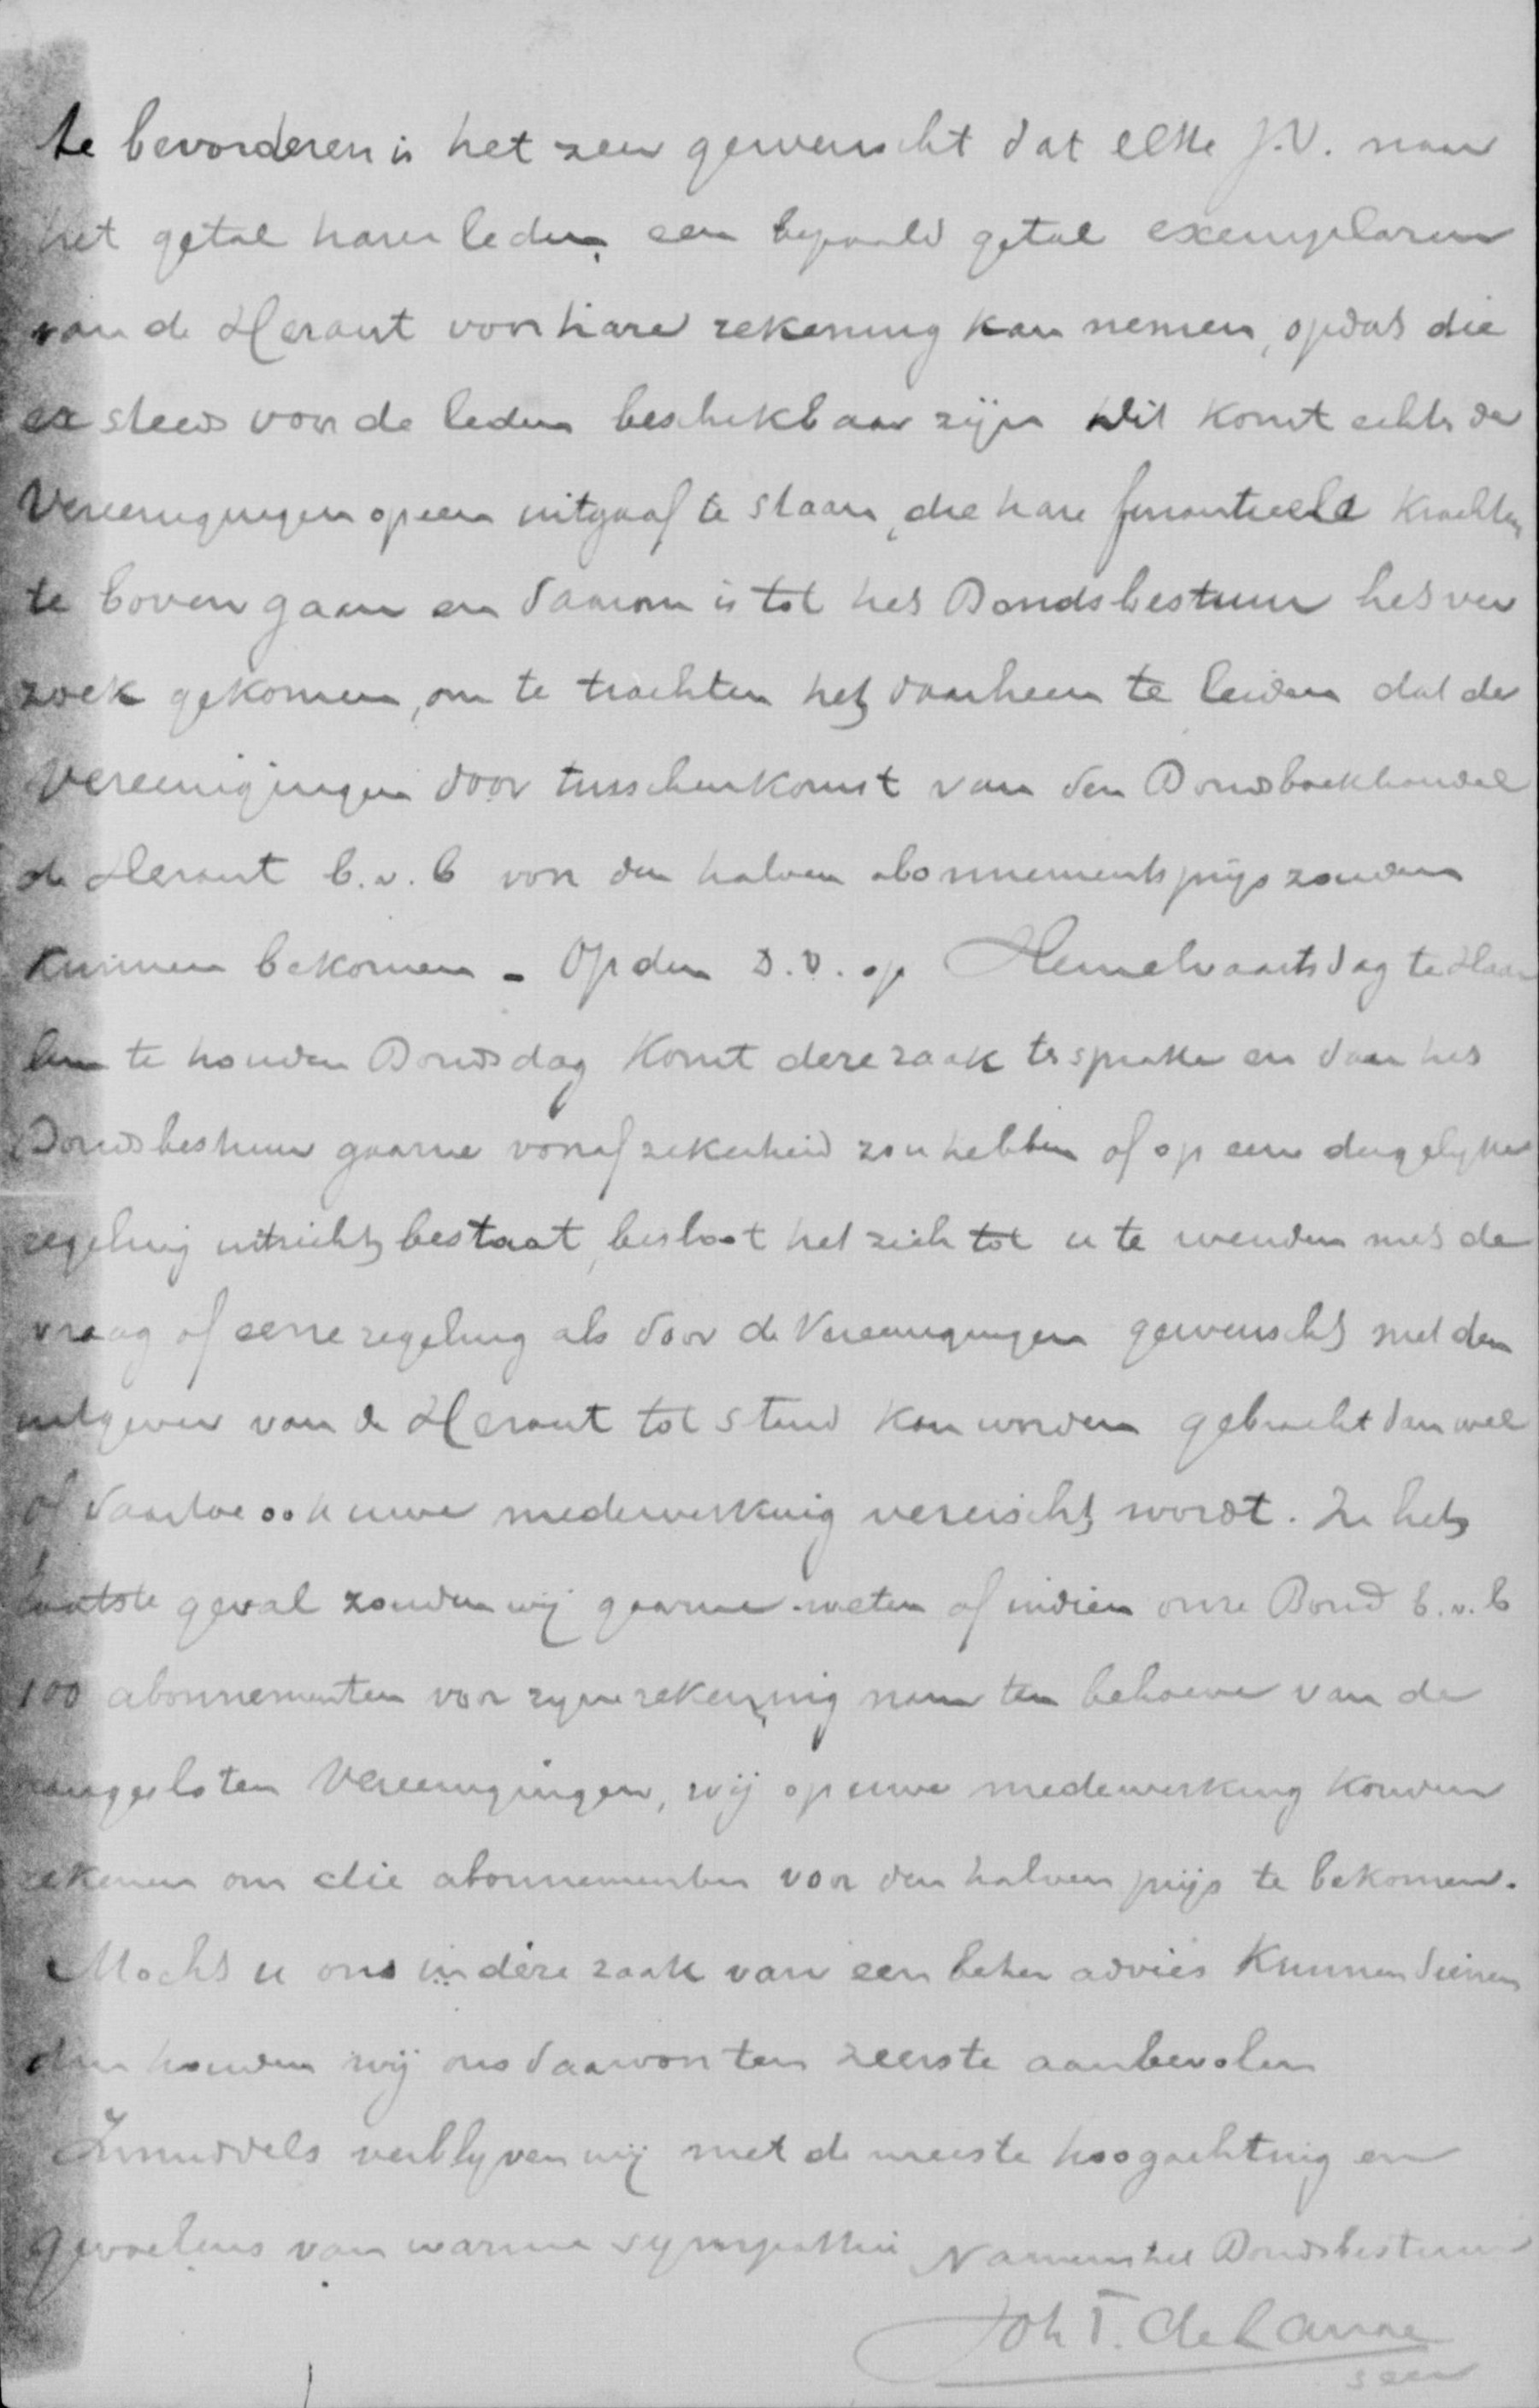 te bevorderen is het zeer gewenscht dat elke J.V. naar
het getal harer leden, een bepaald getal exemplaren
van de Heraut voor hare rekening kan nemen, opdat die
ex steeds voor de leden beschikbaar zijn Dit komt echter de
Vereenigingen op een uitgaaf te staan, die hare financieele krachten
te boven gaan en daarom is tot het Bondsbestuur het ver
zoek gekomen, om te trachten het daarheen te leiden dat de
Vereenigingen door tusschenkomst van den Bondsboekhandel
de Heraut b.v.b voor den halven abonnementsprijs zouden
kunnen bekomen - Op den D.V. op Hemelvaartsdag te Haar
lem te houden Bondsdag komt deze zaak ter sprake en daar het
Bondsbestuur gaarne vooraf zekerheid zou hebben of op eene dergelyke
regeling uitzicht bestaat, besloot het zich tot u te wenden met de
vraag of eene regeling als door de Vereenigingen gewenscht met den
uitgever van de Heraut tot stand kan worden gebracht dan wel
of daartoe ook uwe medewerking vereischt wordt. In het
laatste geval zouden wij gaarne weten of indien onze Bond b.v.b
100 abonnementen voor zyne rekening nam ten behoeve van de
aangesloten Vereenigingen, wij op uwe medewerking konden
rekenen om die abonnementen voor den halven prijs te bekomen.
Mocht u ons in deze zaak van een beter advies kunnen dienen
dan houden wij ons daarvoor ten zeerste aanbevolen
Inmiddels verblyven wij met de meeste hoogachting en
gevoelens van warme sympathie Namens het Bondsbestuur
Joh T. de